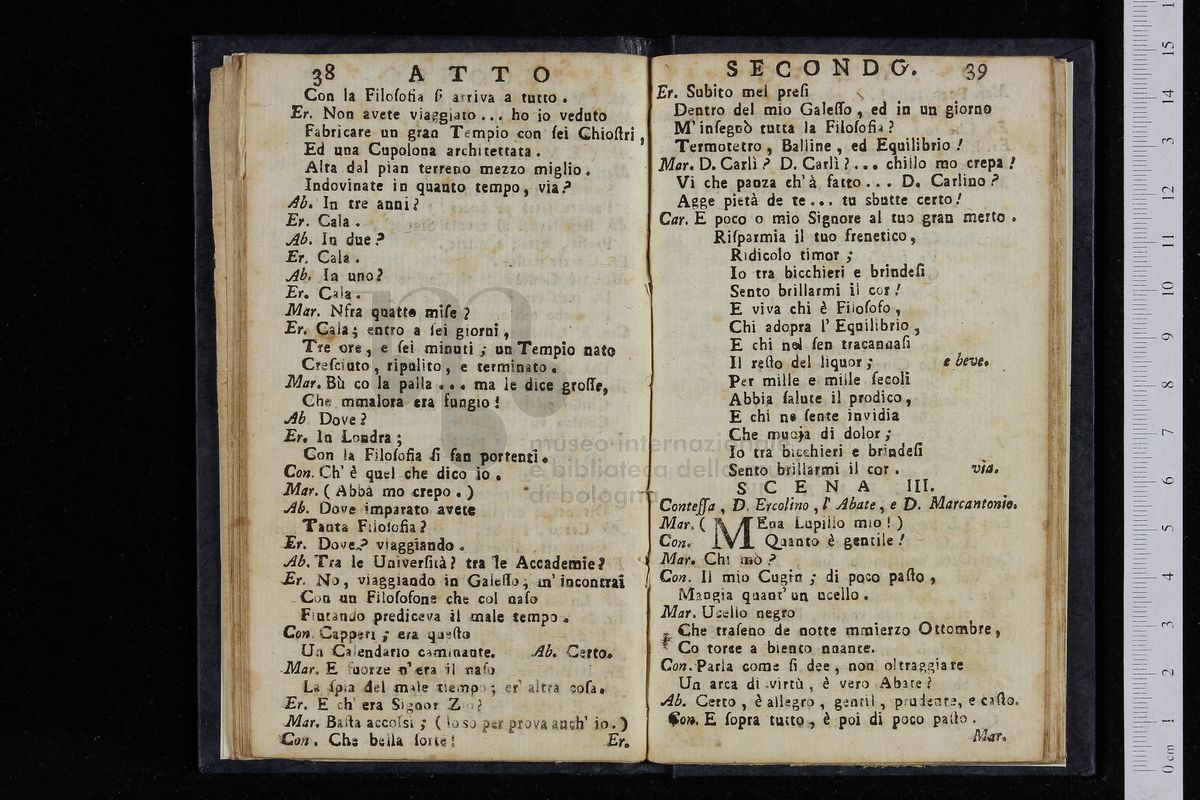 38 ATTO
Con la Filoſofia ſi arriva a tutto.
Er. Non avete viaggiato... ho io veduto
Fabricare un gran Tempio con ſei Chioſtri,
Ed una Cupolona architettata.
Alta dal pian terreno mezzo miglio.
Indovinate in quanto tempo, via?
Ab. In tre anni?
Er. Cala.
Ab. In due?
Er. Cala.
Ab. In uno?
Er. Cala.
Mar. Nfra quatto miſe?
Er. Cala; entro a ſei giorni,
Tre ore, e ſei minuti; un Tempio nato
Creſciuto, ripulito, e terminato.
Mar. Bù co la palla... ma le dice groſſe,
Che mmalora era fungio!
Ab. Dove?
Er. In Londra;
Con la Filoſofia ſi fan portenti.
Con. Ch' è quel che dico io.
Mar. (Abbà mo crepo.)
Ab. Dove imparato avete
Tanta Filoſofia?
Er. Dove? viaggiando.
Ab. Tra le Univerſità? tra le Accademie?
Er. No, viaggiando in Galeſſo, m' incontrai
Con un Filoſofone che col naſo
Fiutando prediceva il male tempo.
Con. Capperi; era queſto
Un Calendario caminante. Ab. Certo.
Mar. E ſuorze n' era il naſo
La ſpia del male tiempo; er' altra coſa.
Er. E ch' era Signor Zio?
Mar. Baſta accoſsì; (lo so per prova anch' io.)
Con. Che bella ſorte!
Er.
SECONDO. 39
Er. Subito mel preſi
Dentro del mio Galeſſo, ed in un giorno
M' inſegnò tutta la Filoſofia?
Termotetro, Balline, ed Equilibrio!
Mar. D. Carlì? D. Carlì?... chillo mo crepa!
Vi che panza ch' à fatto... D. Carlino?
Agge pietà de te... tu sbutte certo!
Car. E poco o mio Signore al tuo gran merto.
Riſparmia il tuo frenetico,
Ridicolo timor;
Io tra bicchieri e brindeſi
Sento brillarmi il cor!
E viva chi è Filoſofo,
Chi adopra l' Equilibrio,
E chi nel ſen tracannaſi
Il reſto del liquor; e beve.
Per mille e mille ſecoli
Abbia ſalute il prodico,
E chi ne ſente invidia
Che muoja di dolor;
Io tra bicchieri e brindeſi
Sento brillarmi il cor. via.
SCENA III.
Conteſſa, D. Ercolino, l' Abate, e D. Marcantonio.
Mar. (MEna Lupillo mio!)
Con. Quanto è gentile!
Mar. Chi mò?
Con. Il mio Cugin; di poco paſto,
Mangia quant' un ucello.
Mar. Ucello negro
Che traſeno de notte mmierzo Ottombre,
Co torce a biento nnante.
Con. Parla come ſi dee, non oltraggiare
Un arca di virtù, è vero Abate?
Ab. Certo, è allegro, gentil, prudente, e caſto.
Con. E ſopra tutto, è poi di poco paſto.
Mar.
m
museo internazionale
e biblioteca della
di bologna
0 cm 1 2 3 4 5 6 7 8 9 10 11 12 13 14 15